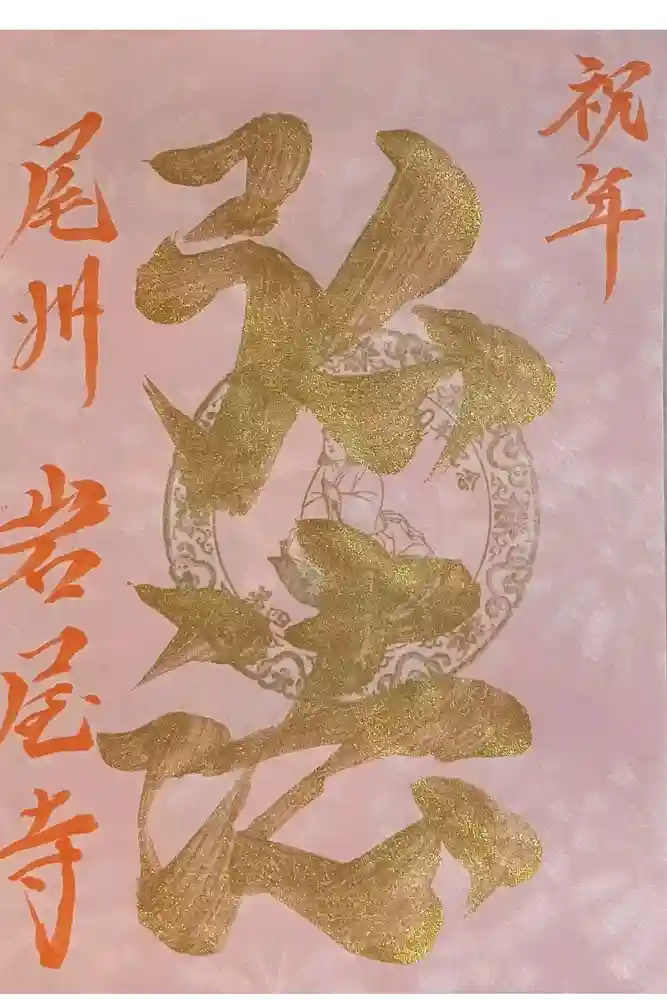 祝年
弘法
尾州 岩屋寺